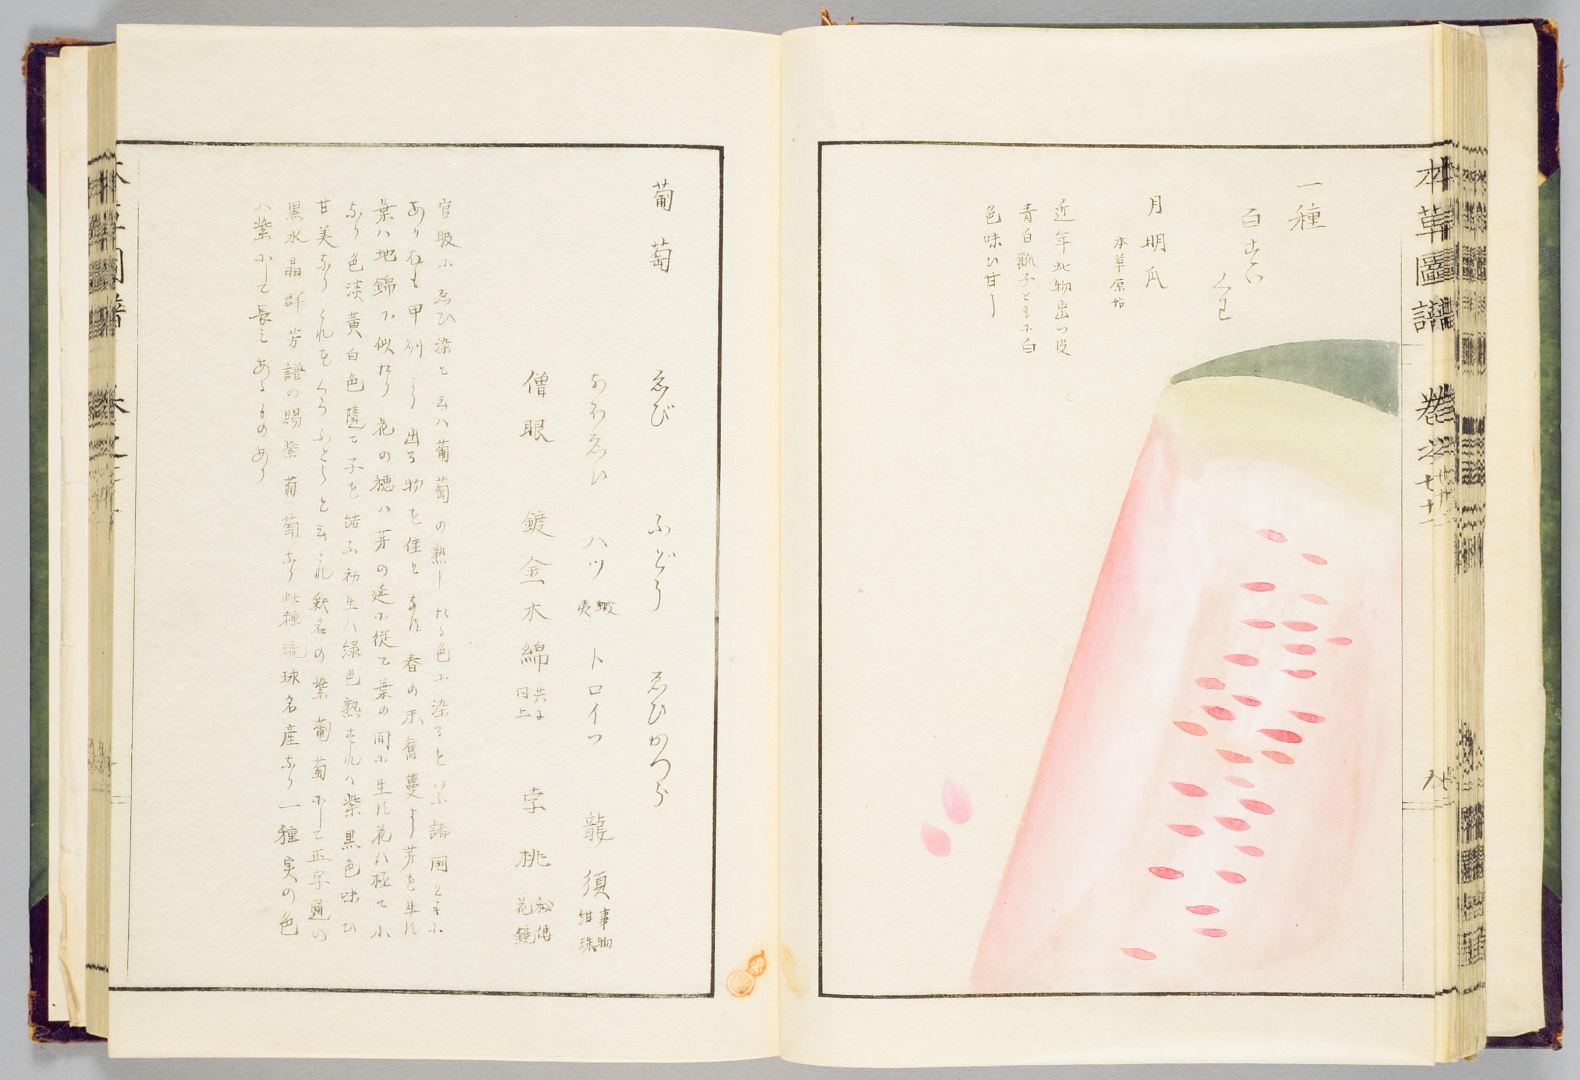 本草圖譜 巻之七十一
一種
白すいくわ
月明瓜
本草原始
近年此物出つ皮
青白瓤子ともに白
色味ひ甘し
葡萄 ゑび ふどう ゑひかつら
ハツ トロイツ 龍須 事物紺珠
僧眼 鍍金木綿 共に同上 孛桃 秘傳花鏡
官服にゑひ染と云ハ葡萄の熟したる色に染るをいふ諸国ともに
あり 甲州より出る物を佳とす 春の末舊蔓より芽を生す
葉ハ地錦に似たり花の穂ハ芽の延に従て葉の間に生す花ハ極て小
なり色淡黄白色隨て子を結ふ初生ハ緑色熟すれハ紫黒色味ひ
甘美なり これをくろふとうと云 釈名の紫葡萄にして正字通の
黒水晶群芳譜の賜紫葡萄なり此種琉球名産なり一種実の色
ハ紫にして長きあるものあり